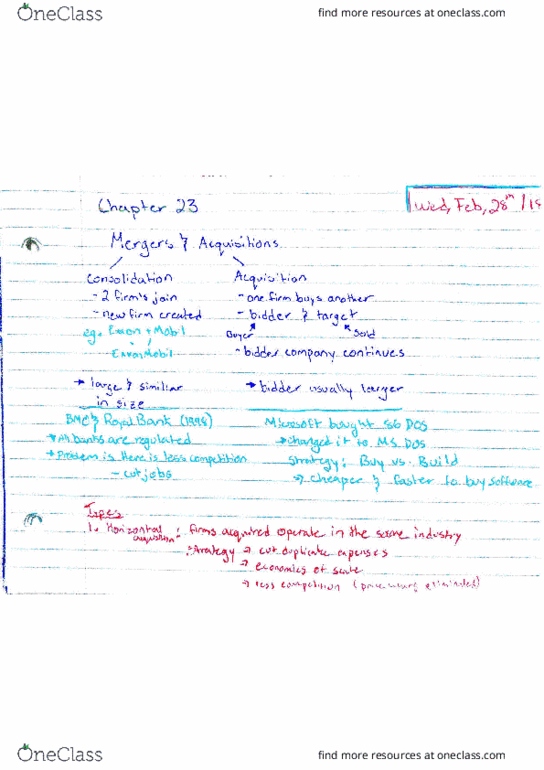 OneClass find more resources at oneclass.com
Chapter 23
Wed, Feb, 28th /18
Mergers & Acquisitions
Consolidation Acquisition
- 2 firm's join - one firm buys another
- new firm created - bidder & target
eg. Exxon + Mobil Buyer Sold
ExxonMobil - bidder company continues
→ large & similiar → bidder usually larger
in size
& Royal Bank (1998) Microsoft bought 86 DOS
→ All banks are regulated → changed it to MS DOS
→ Problem is there is less competition Strategy: Buy vs. Build
- cut jobs → cheaper & faster to buy software
Types
1. Horizontal acquisition: firms acquired operate in the same industry
Strategy → cut duplicate expenses
→ economies of scale
→ less competition (price wars eliminated)
OneClass find more resources at oneclass.com